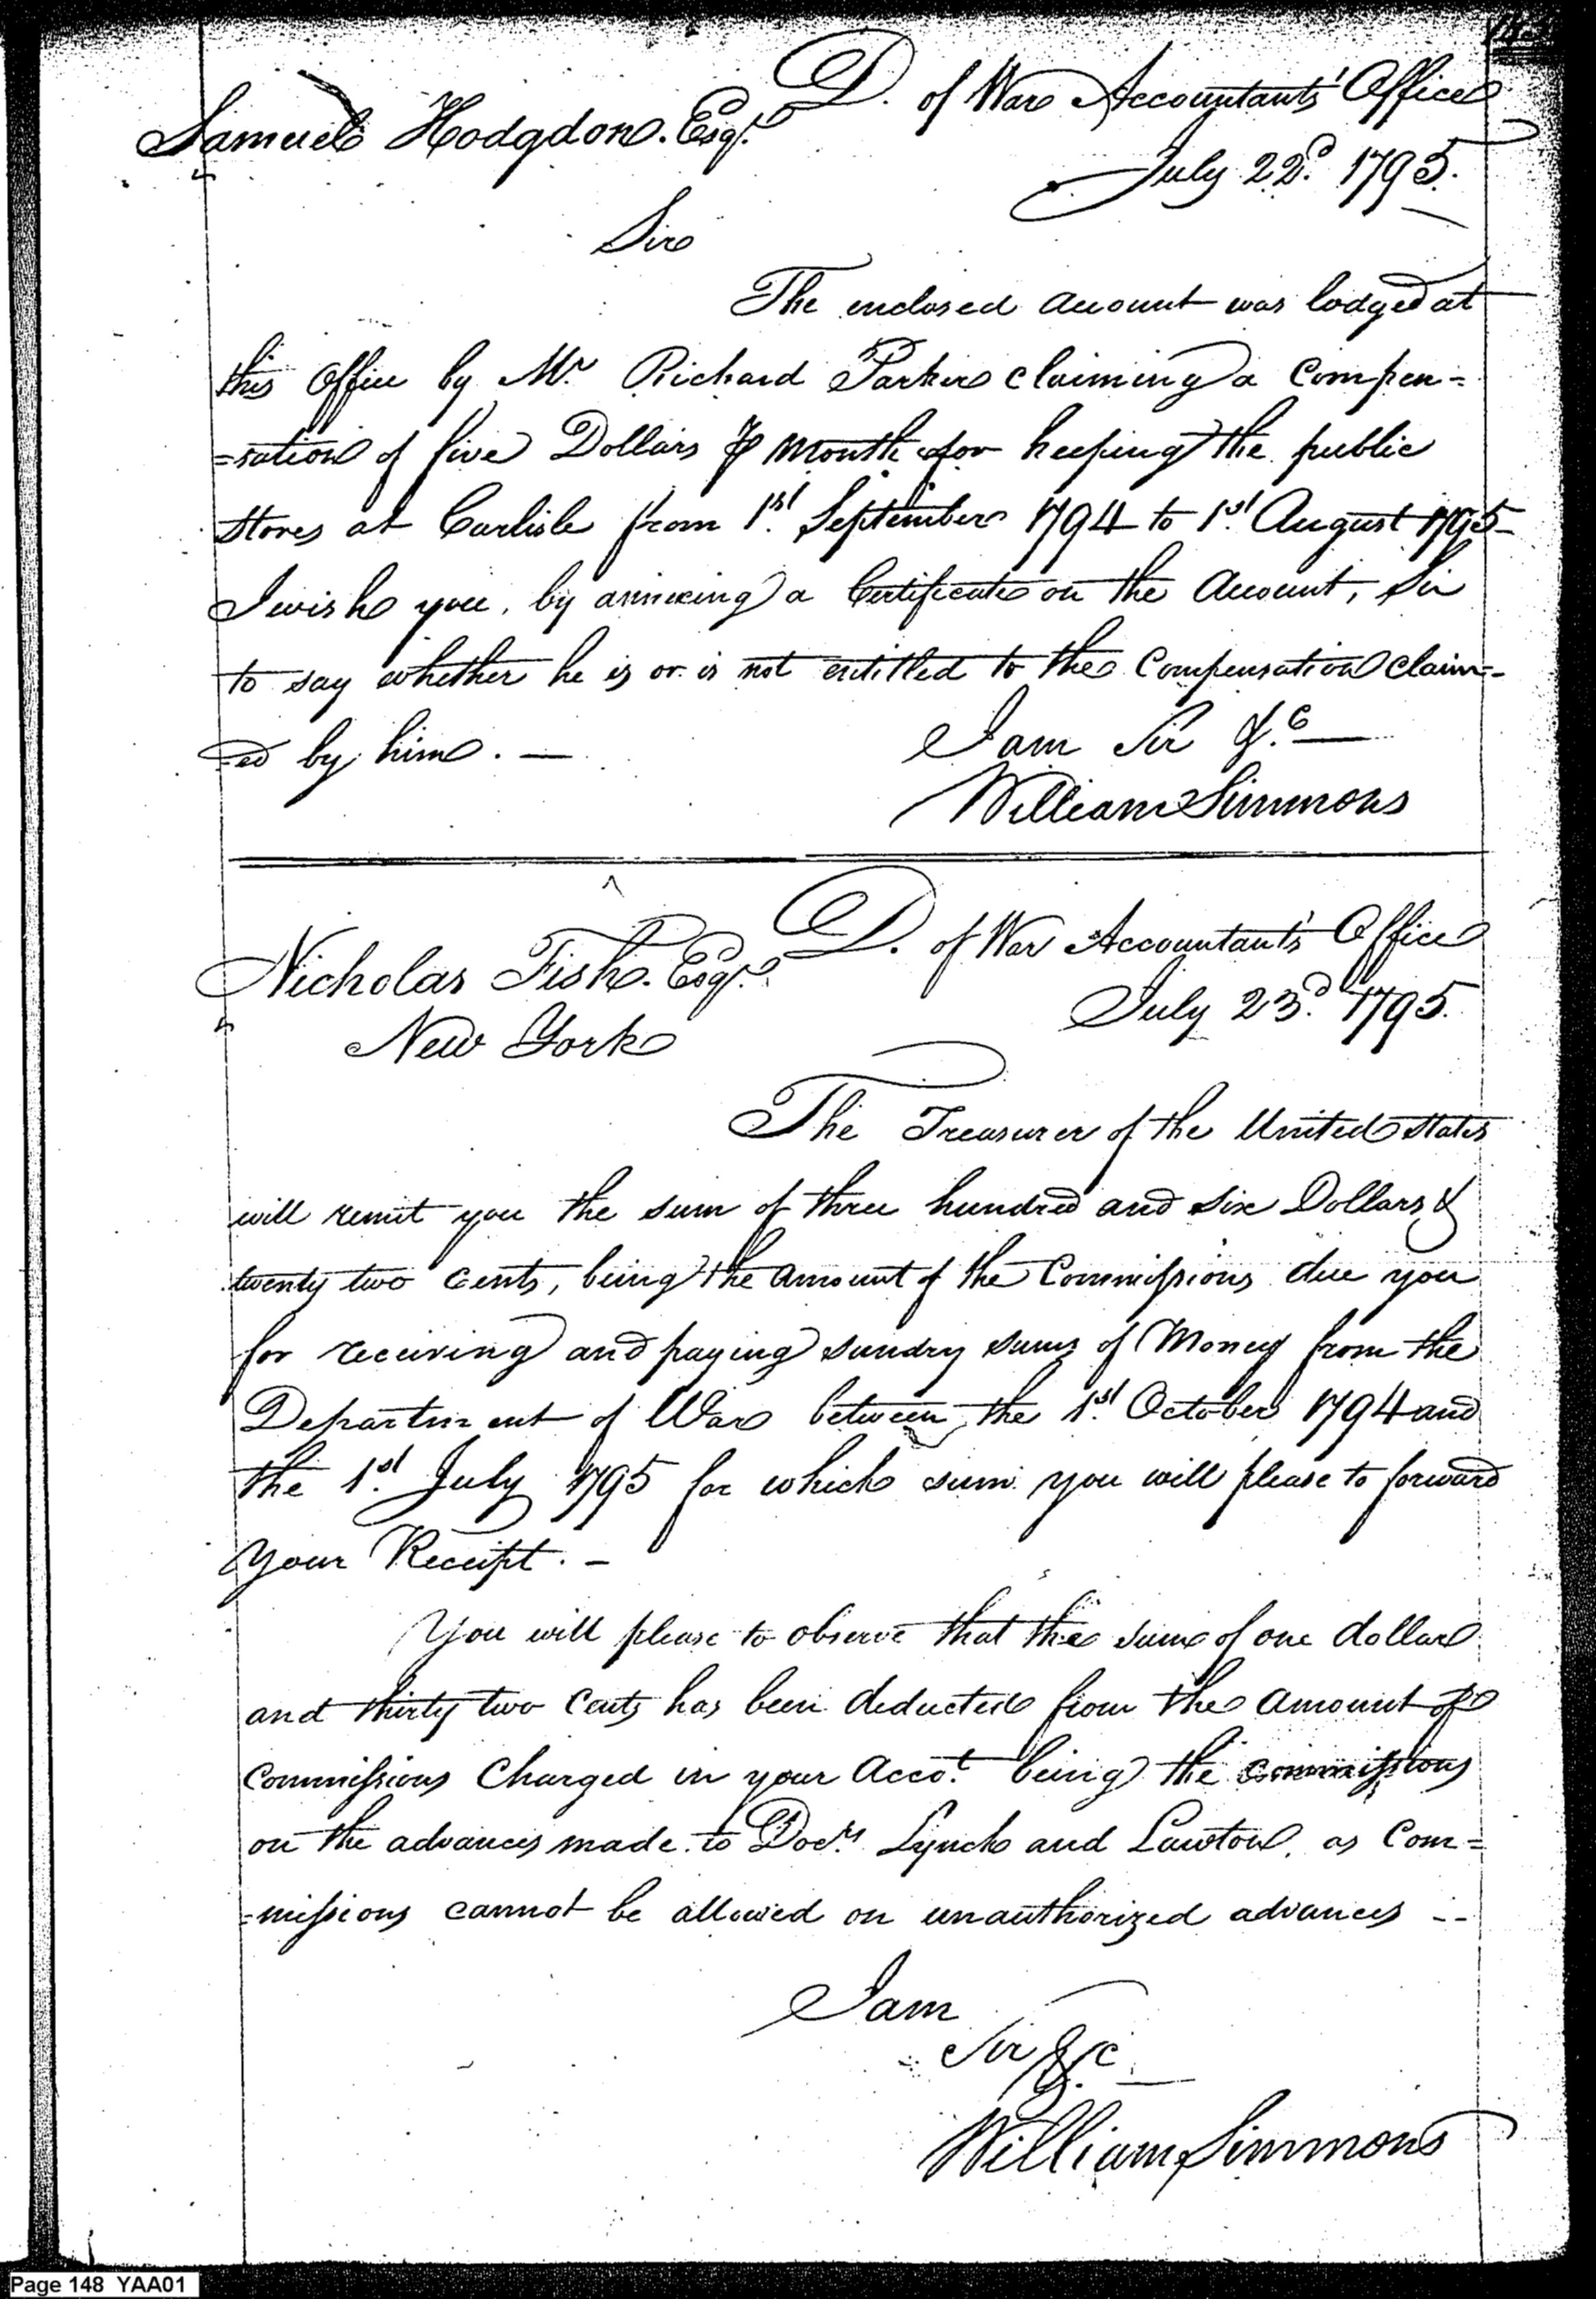 D. of War Accountants' Office
Samuel Hodgdon. Esqr.
July 22d. 1795.
Sir
The enclosed account was lodged at
this Office by Mr. Richard Parker claiming a Compen=
=sation of five Dollars ⅌ Month for keeping the public
Stores at Carlisle from 1st. September 1794 to 1st. August 1795
I wish you, by annexing a Certificate on the Account, Sir
to say whether he is or is not entitled to the Compensation claim=
=ed by him. —
I am Sir &.c —
William Simmons
D. of War Accountant's Office
Nicholas Fish. Esqr.
July 23d. 1795.
New York
The Treasurer of the United States
will remit you the sum of three hundred and six Dollars &
twenty two cents, being the amount of the Commissions due you
for receiving and paying sundry sums of Money from the
Department of War between the 1st. October 1794 and
the 1st. July 1795 for which sum you will please to forward
your Receipt. –
You will please to observe that the sum of one dollar
and thirty two Cents has been deducted from the amount of
Commissions Charged in your Acco.t being the commissions
on the advances made to Docrs. Lynch and Lawton, as Com=
=missions cannot be allowed on unauthorized advances --
I am
Sir &.c —
William Simmons
Page 148 YAA01